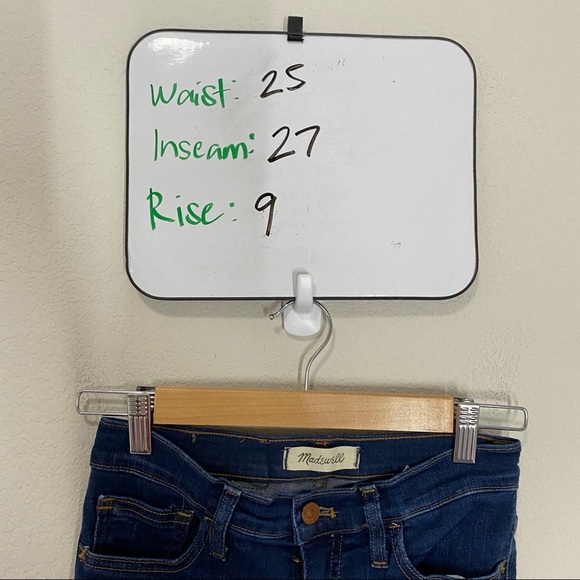 Waist: 25
Inseam: 27
Rise: 9
Madewell